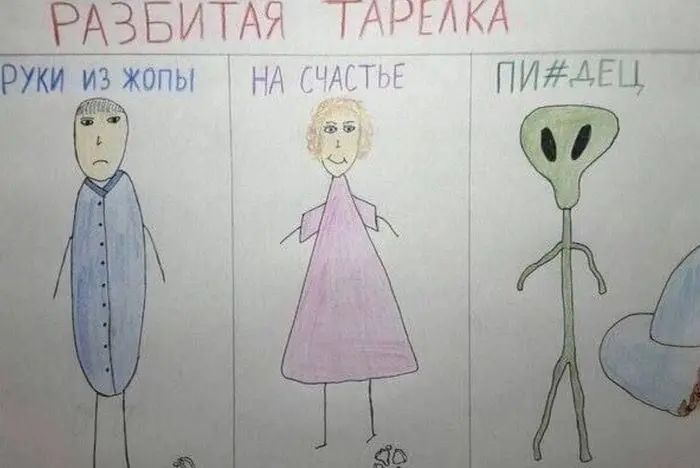 РАЗБИТАЯ ТАРЕЛКА
РУКИ ИЗ ЖОПЫ
НА СЧАСТЬЕ
ПИ#ДЕЦ